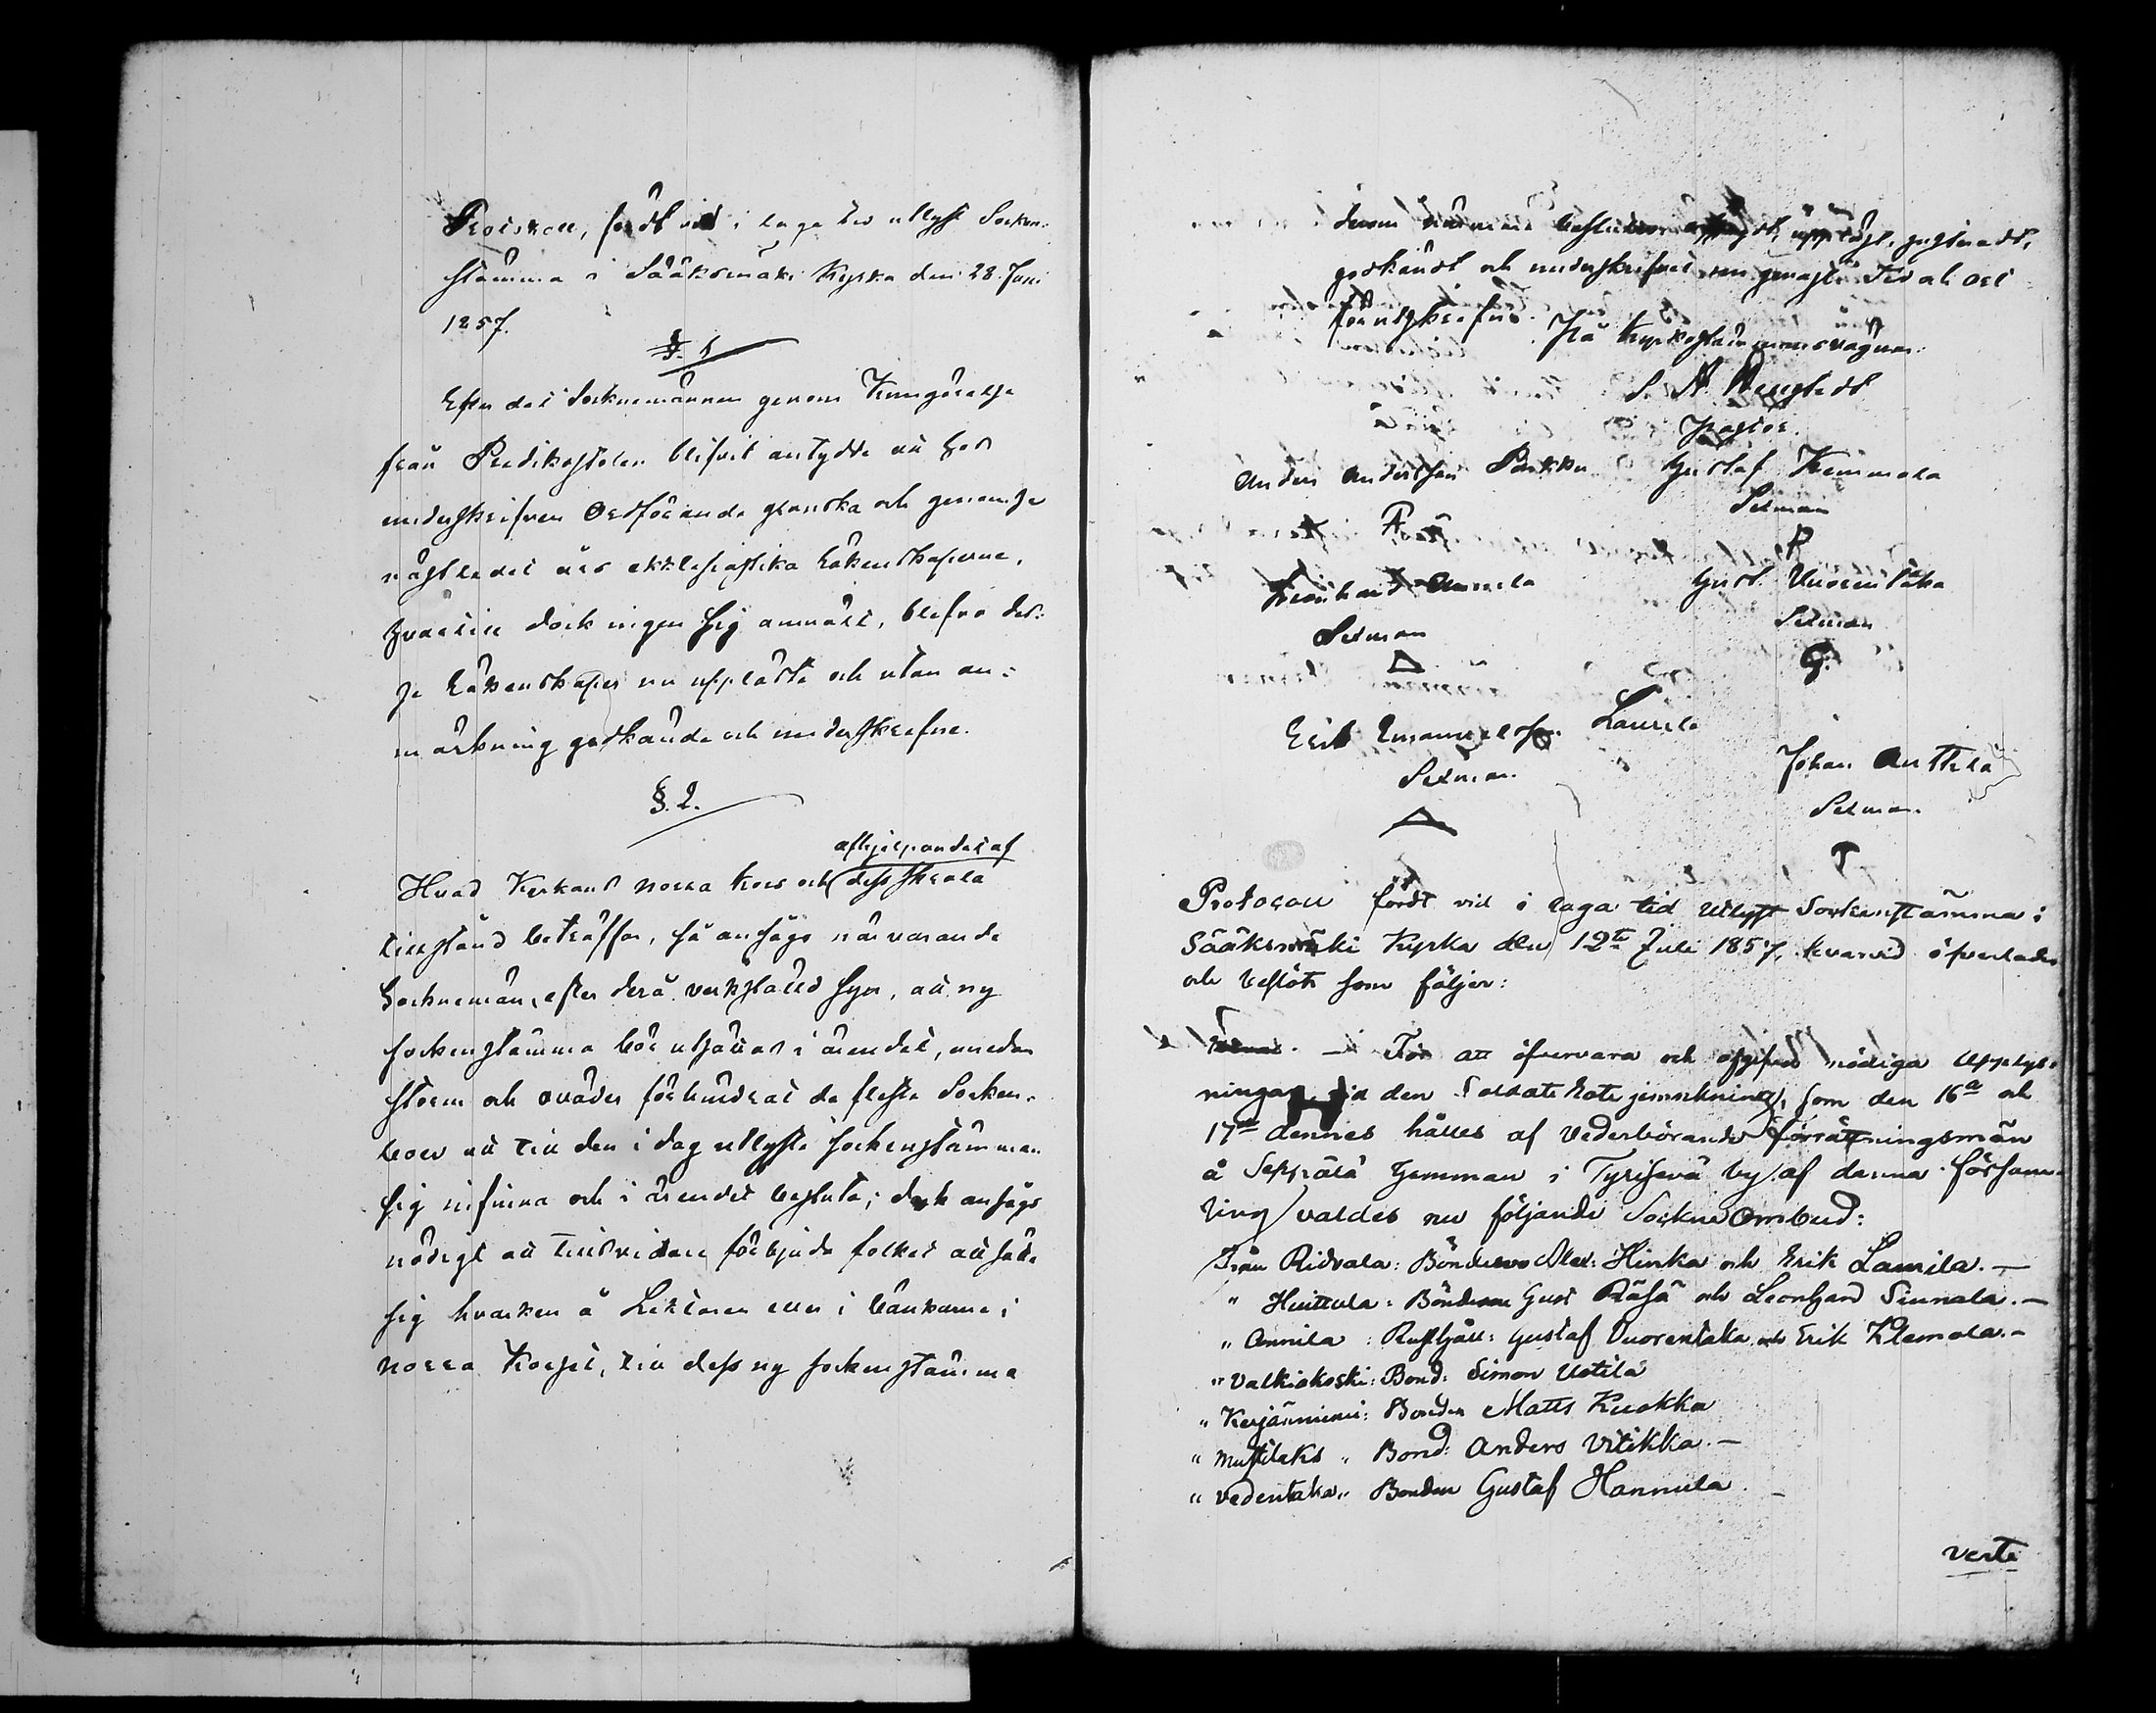 Protokoll, fördt vid i laga tid utlyst Socken-
stämma i Sääksmäki Kyrka den 28. Juni
1857.
§. 1
Efter det Socknemännen genom Kungörelse
från Predikostolen blifvit antydde att hos
underskrifven Ordförande granska och genomse
nästledet års ekklesiastika Räkenskaperne,
hvartill dock ingen sig anmält, blefvo des-
se Räkenskaper nu upplästa och utan an-
märkning godkände och underskrefne.
§. 2.
afhjelpandet af
Hvad Kyrkans norra Kors och dess skrala
tillstånd beträffar, så ansågo närvarande
Socknemän, efter derå verkstäld syn, att ny
sockenstämma bör utsättas i ärendet, medan
storm och oväder förhindrat de flesta Socken-
boer att till den i dag utlysta sockenstämman
sig infinna och i ärendet besluta; dock ansågs
nödigt att tillsvidare förbjuda folket att sätta
sig hvarken å Lektaren eller i bänkarne i
norra Korset, till dess ny sockenstämma
derom närmare beslutar uppläst, justeradt,
godkändt och underskrifvet som genast Tid och Ort
förutskrefne. På Kyrkostämmans vägnar:
Pastor.
Anders Andersson Pirkku Gustaf Kemmola
Sexman
A P
Leonhard Annila Gust. Vuorentaka
Sexman Sexman
G.
Erik Emanuelsson Laurila
Sexman. Johan Anttila
Sexman.
T
Protocoll fördt vid i laga tid utlyst Sockenstämma i
Sääksmäki Kyrka den 12te Juli 1857, hvarvid öfverlades
och beslöts som följer:
— För att öfvervara och afgifva nödiga upplys-
ningar vid den Soldate Rote jemnkning, som den 16de och
17de dennes hålles af Vederbörande förrättningsmän
å Seppälä hemman i Tyrisevä by, af denna försam-
ling valdes nu följande Sockne Ombud:
Från Ridvala: Bönderne Alex: Hinka och Erik Laurila. —
" Huittula: Bönderne Gust Räsä och Leonhard Sinnala. —
" Annila: Rusthåll: Gustaf Vuorentaka och Erik Klemola. —
" Valkiakoski: Bond: Simon Uotila
" Kerjänniemi: Bonden Matts Kuokka
" Mustilaks " Bond: Anders Vitikka. —
" Vedentaka " Bonden Gustaf Hannula. —
verte